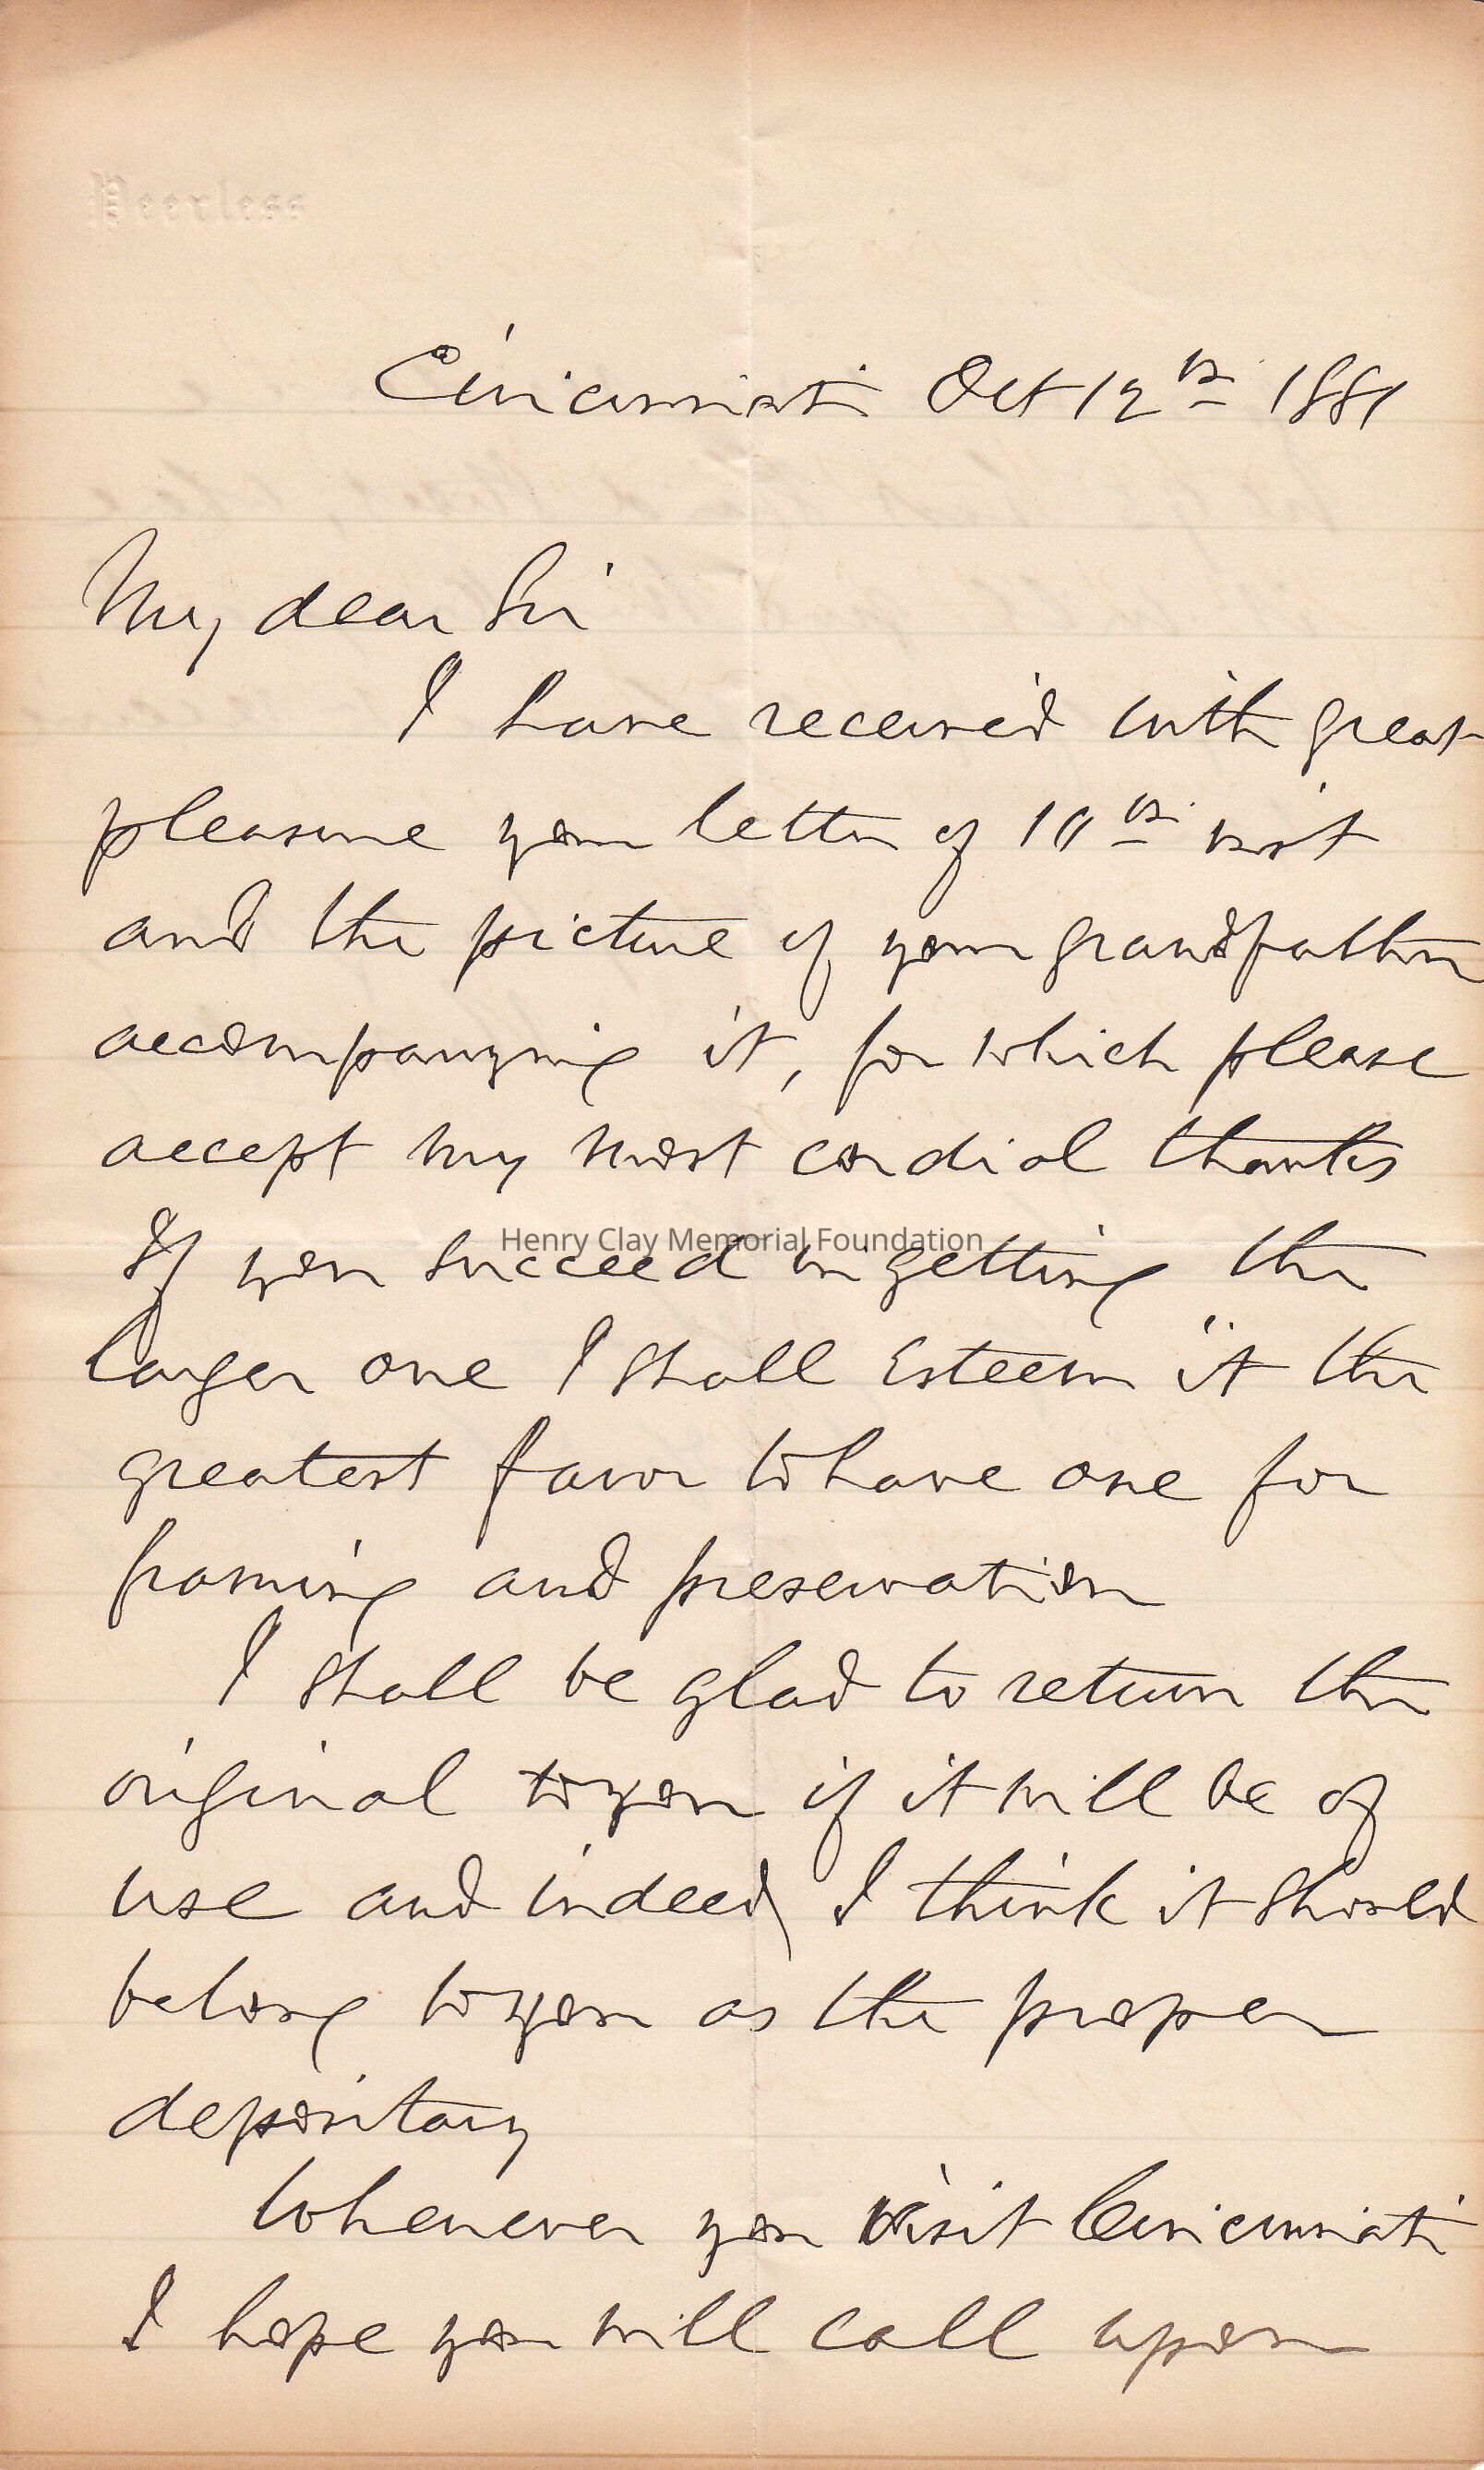 Peerless
Cincinnati Oct 12th 1881
My dear Sir
I have received with great
pleasure your letter of 10th inst
and the picture of your grandfather
accompanying it, for which please
accept my most cordial thanks
Henry Clay Memorial Foundation
If you succeed in getting the
larger one I shall esteem it the
greatest favor to have one for
framing and preservation
I shall be glad to return the
original to you if it will be of
use and indeed I think it should
belong to you as the proper
depository
Whenever you visit Cincinnati
I hope you will call upon